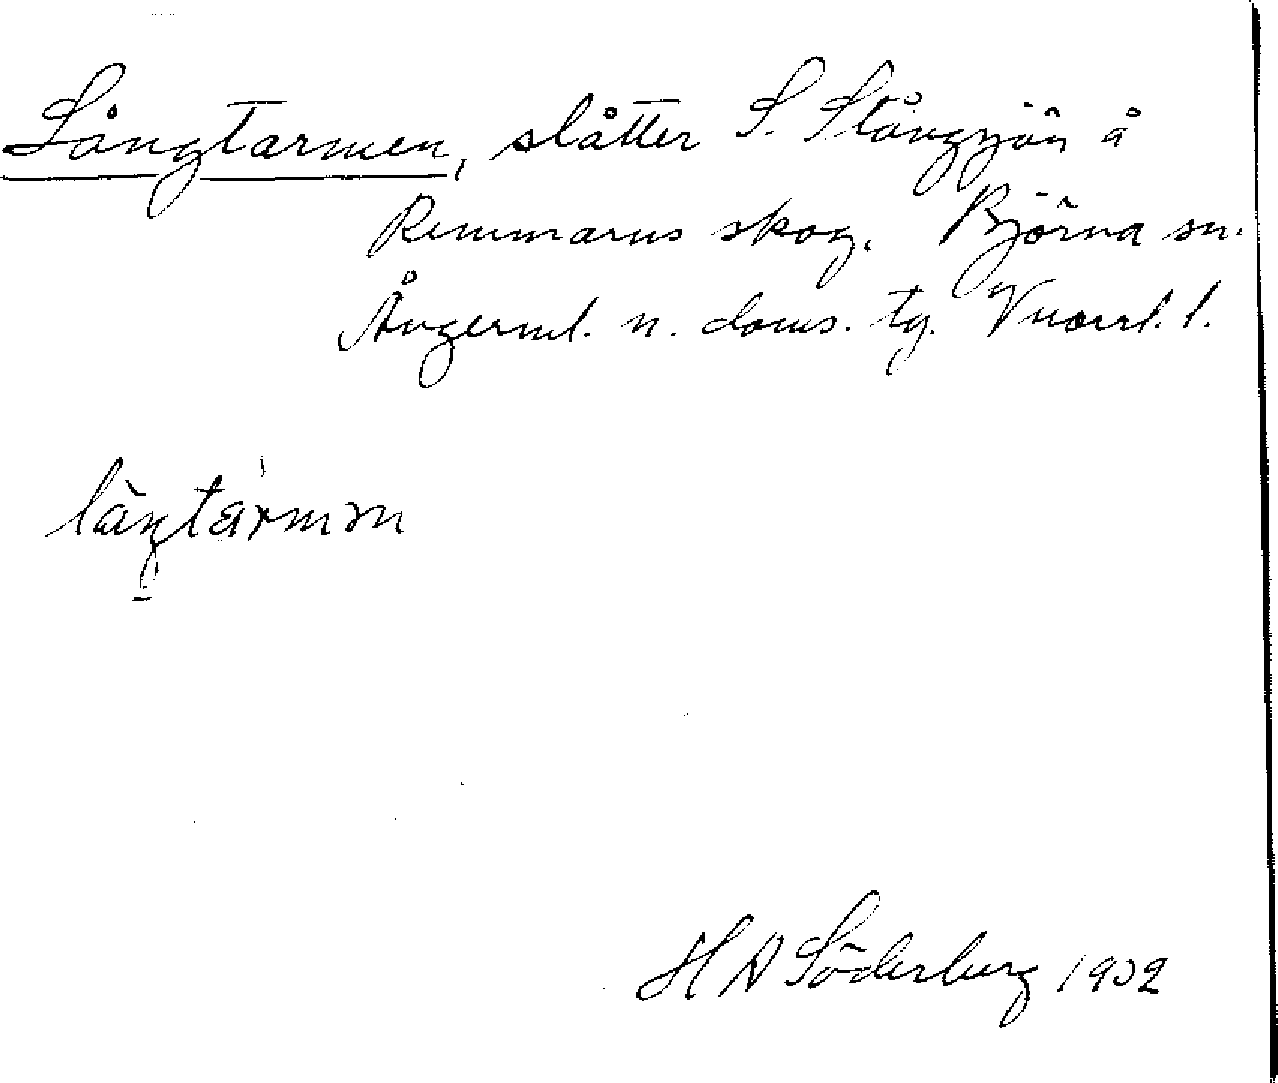 Långtarmen, slåtter S. Stångsjön å
Remmarns skog. Björna sn.
Ångerml. n. doms. tg. Vnorrl. l.
làŋtármən
H A Söderberg 1932